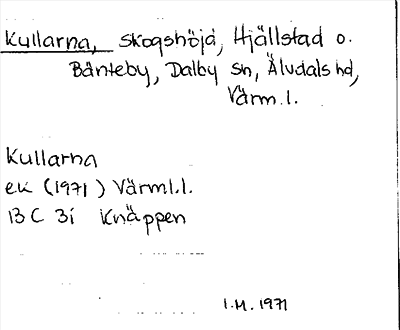 Kullarna, Skogshöjd, Hjällstad o.
Bänteby, Dalby sn, Älvdals hd,
Värm.l.
Kullarna
ek (1971) Värml.l.
13 C 3i Knäppen
I.M. 1971